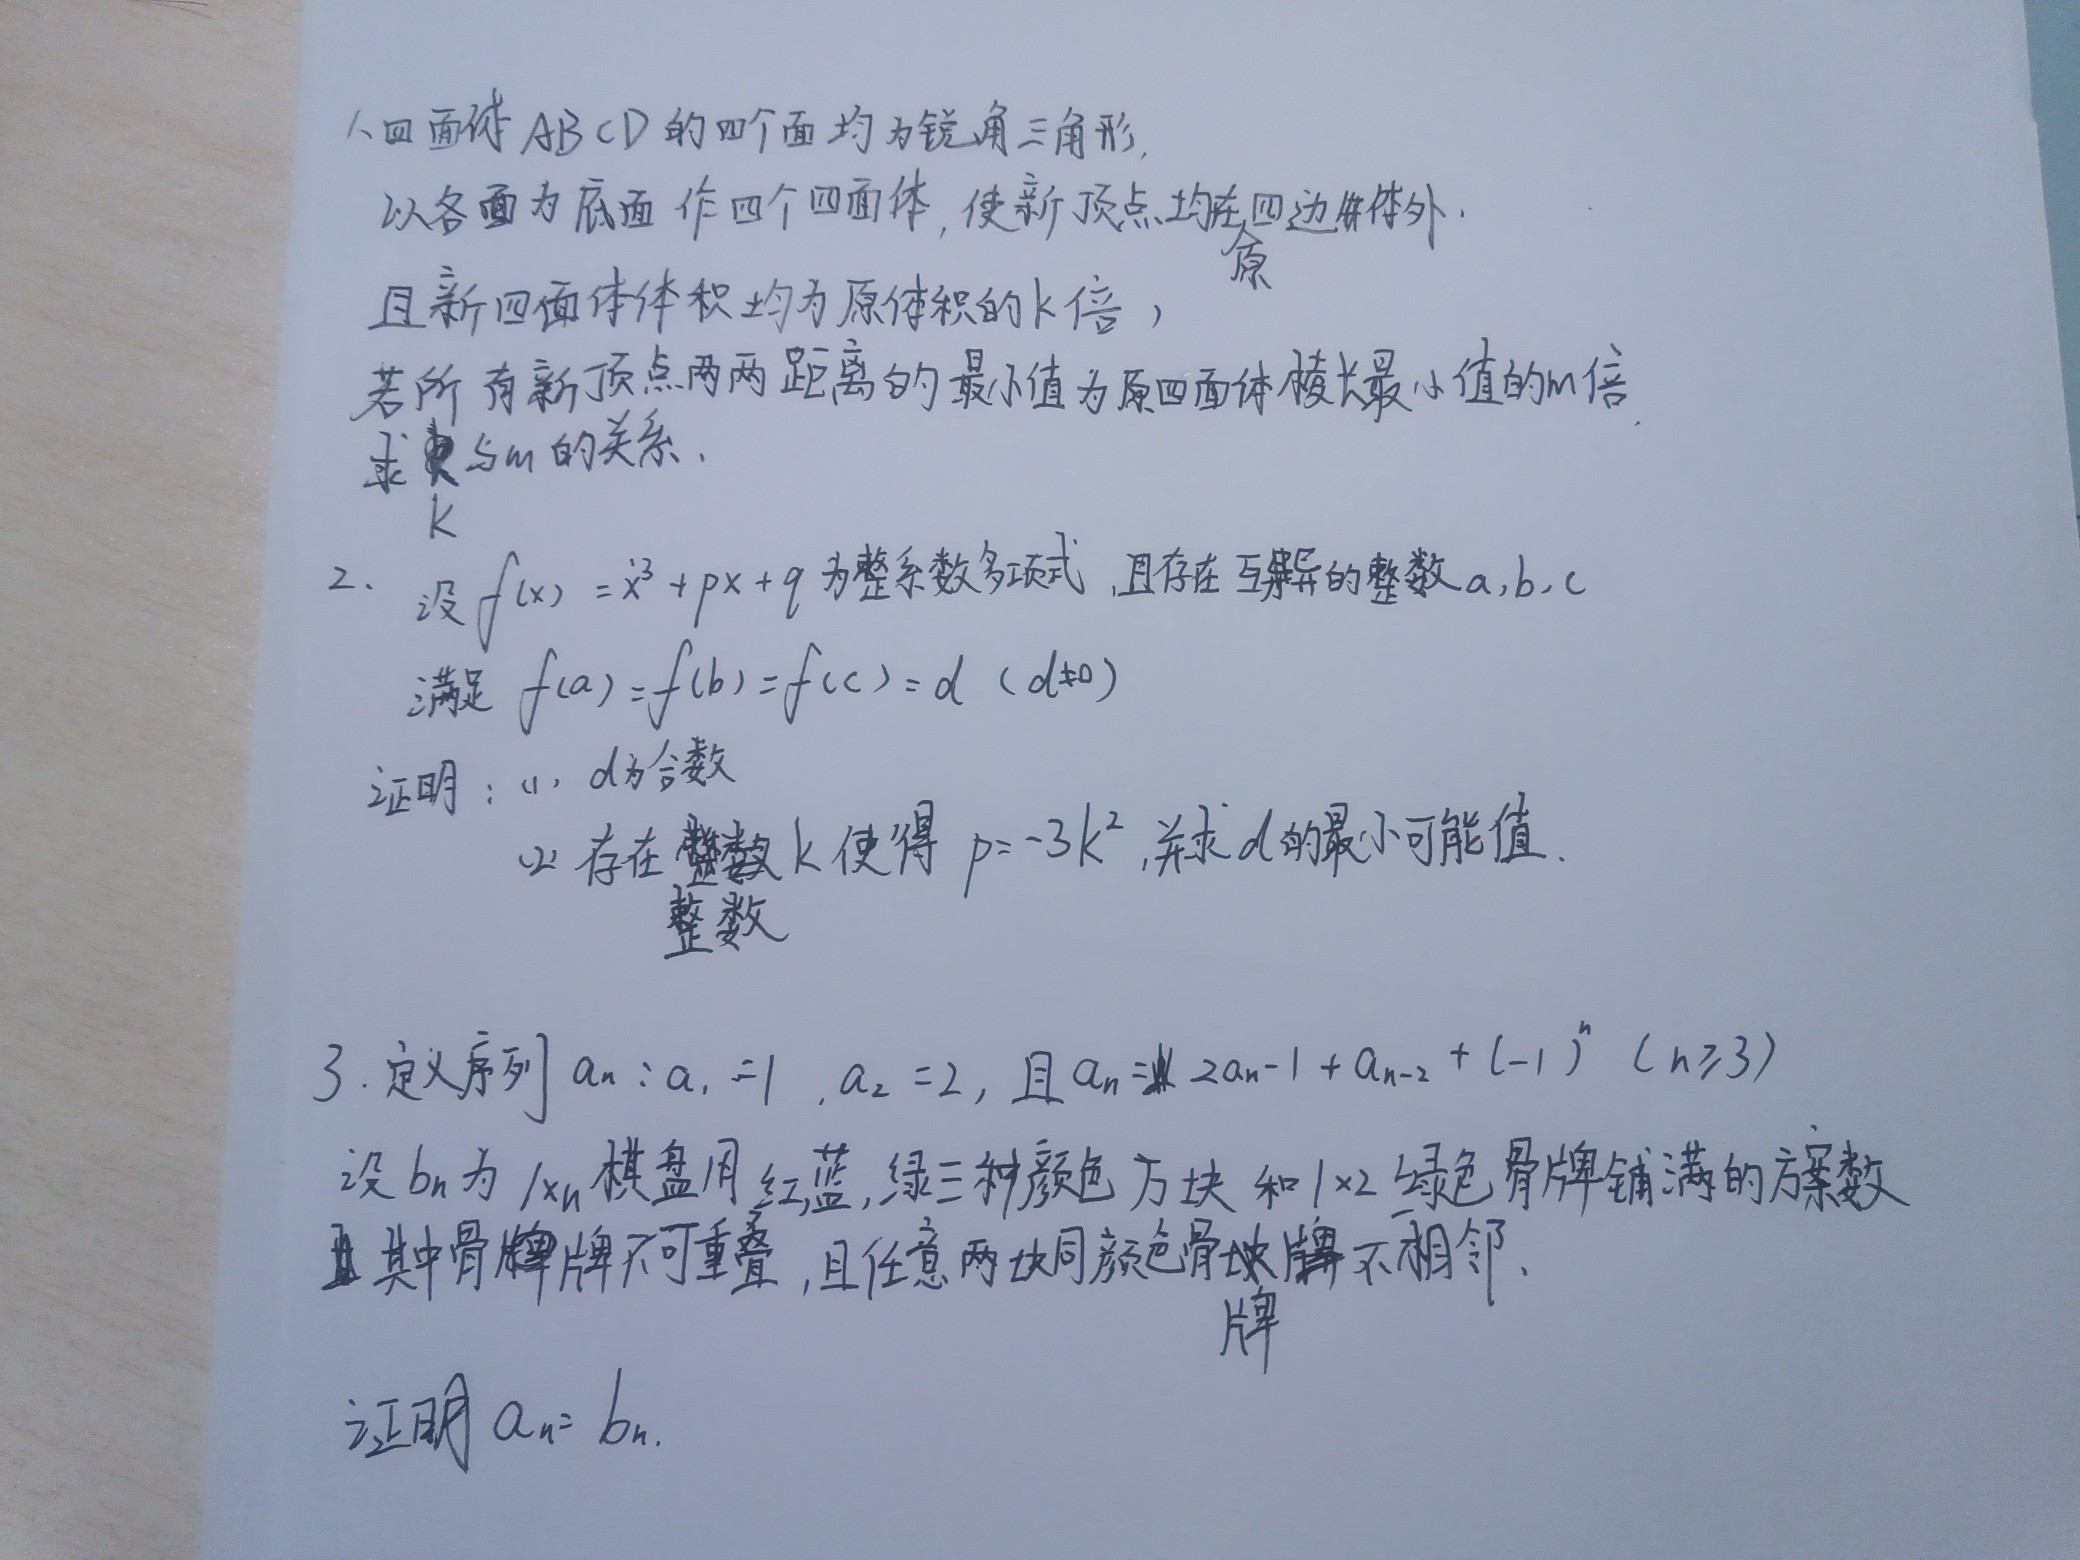 1、四面体ABCD的四个面均为锐角三角形,
以各面为底面作四个四面体,使新顶点均在原四边体外.
且新四面体体积均为原体积的k倍,
若所有新顶点两两距离的最小值为原四面体棱长最小值的m倍.
求k与m的关系.
2. 设f(x)=x³+px+q为整系数多项式,且存在互异的整数a,b,c
满足 f(a)=f(b)=f(c)=d (d≠0)
证明:(1) d为合数
(2) 存在整数k使得 p=-3k²,并求d的最小可能值.
3.定义序列 aₙ:a₁=1,a₂=2,且aₙ=2aₙ-1+aₙ₋₂+(-1)ⁿ (n≥3)
设bₙ为1×n棋盘用红,蓝,绿三种颜色方块和1×2绿色骨牌铺满的方案数
其中骨牌不可重叠,且任意两块同颜色骨牌不相邻.
证明aₙ=bₙ.